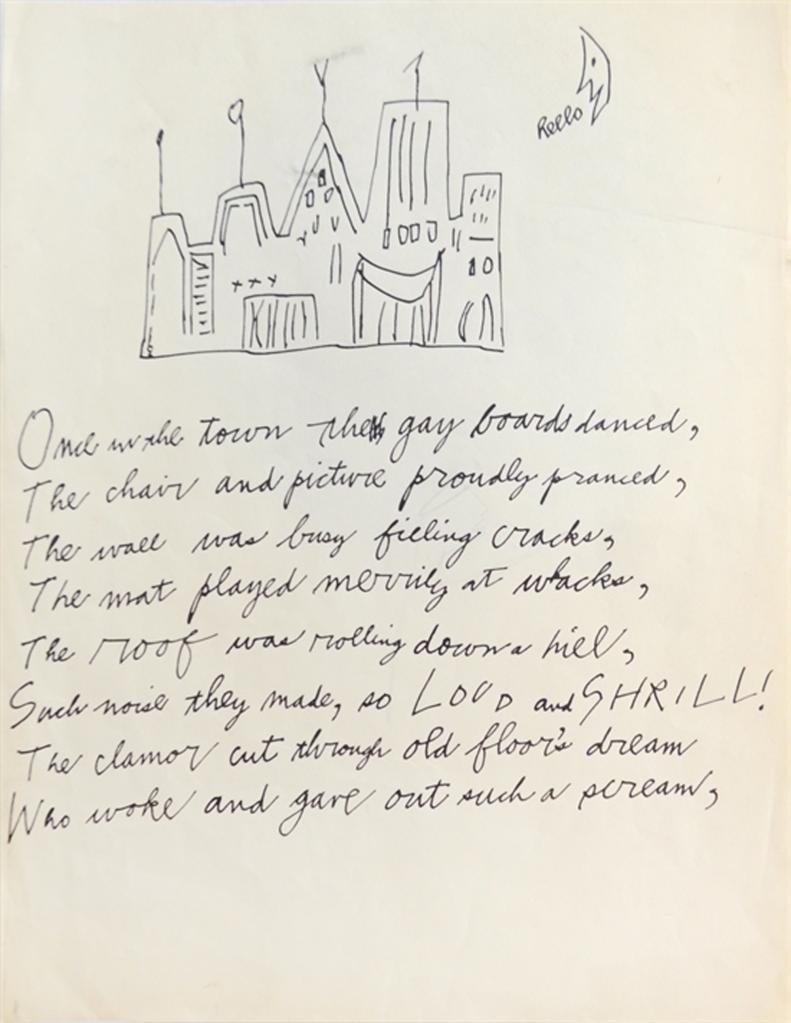 Hello
Once in the town the gay boards danced,
The chair and picture proudly pranced,
The wall was busy filling cracks,
The mat played merrily at whacks,
The roof was rolling down a hill,
Such noise they made, so LOUD and SHRILL!
The clamor cut through old floor's dream
Who woke and gave out such a scream,